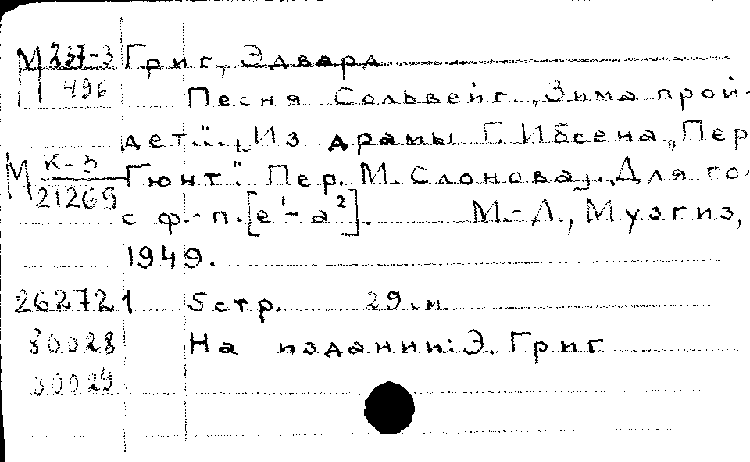 М 237-3 Григ, Эдвард
496 Песня Сольвейг "Зима прой-
дет...", Из драмы Г. Ибсена "Пер
М К-3 Гюнт". Пер. М. Слонова. Для го.
21269 с ф.-п. [e¹-a²]. М.-Л., Музгиз,
1949.
262721 5 стр. 29 см
80028 На издании: Э. Григ
30029